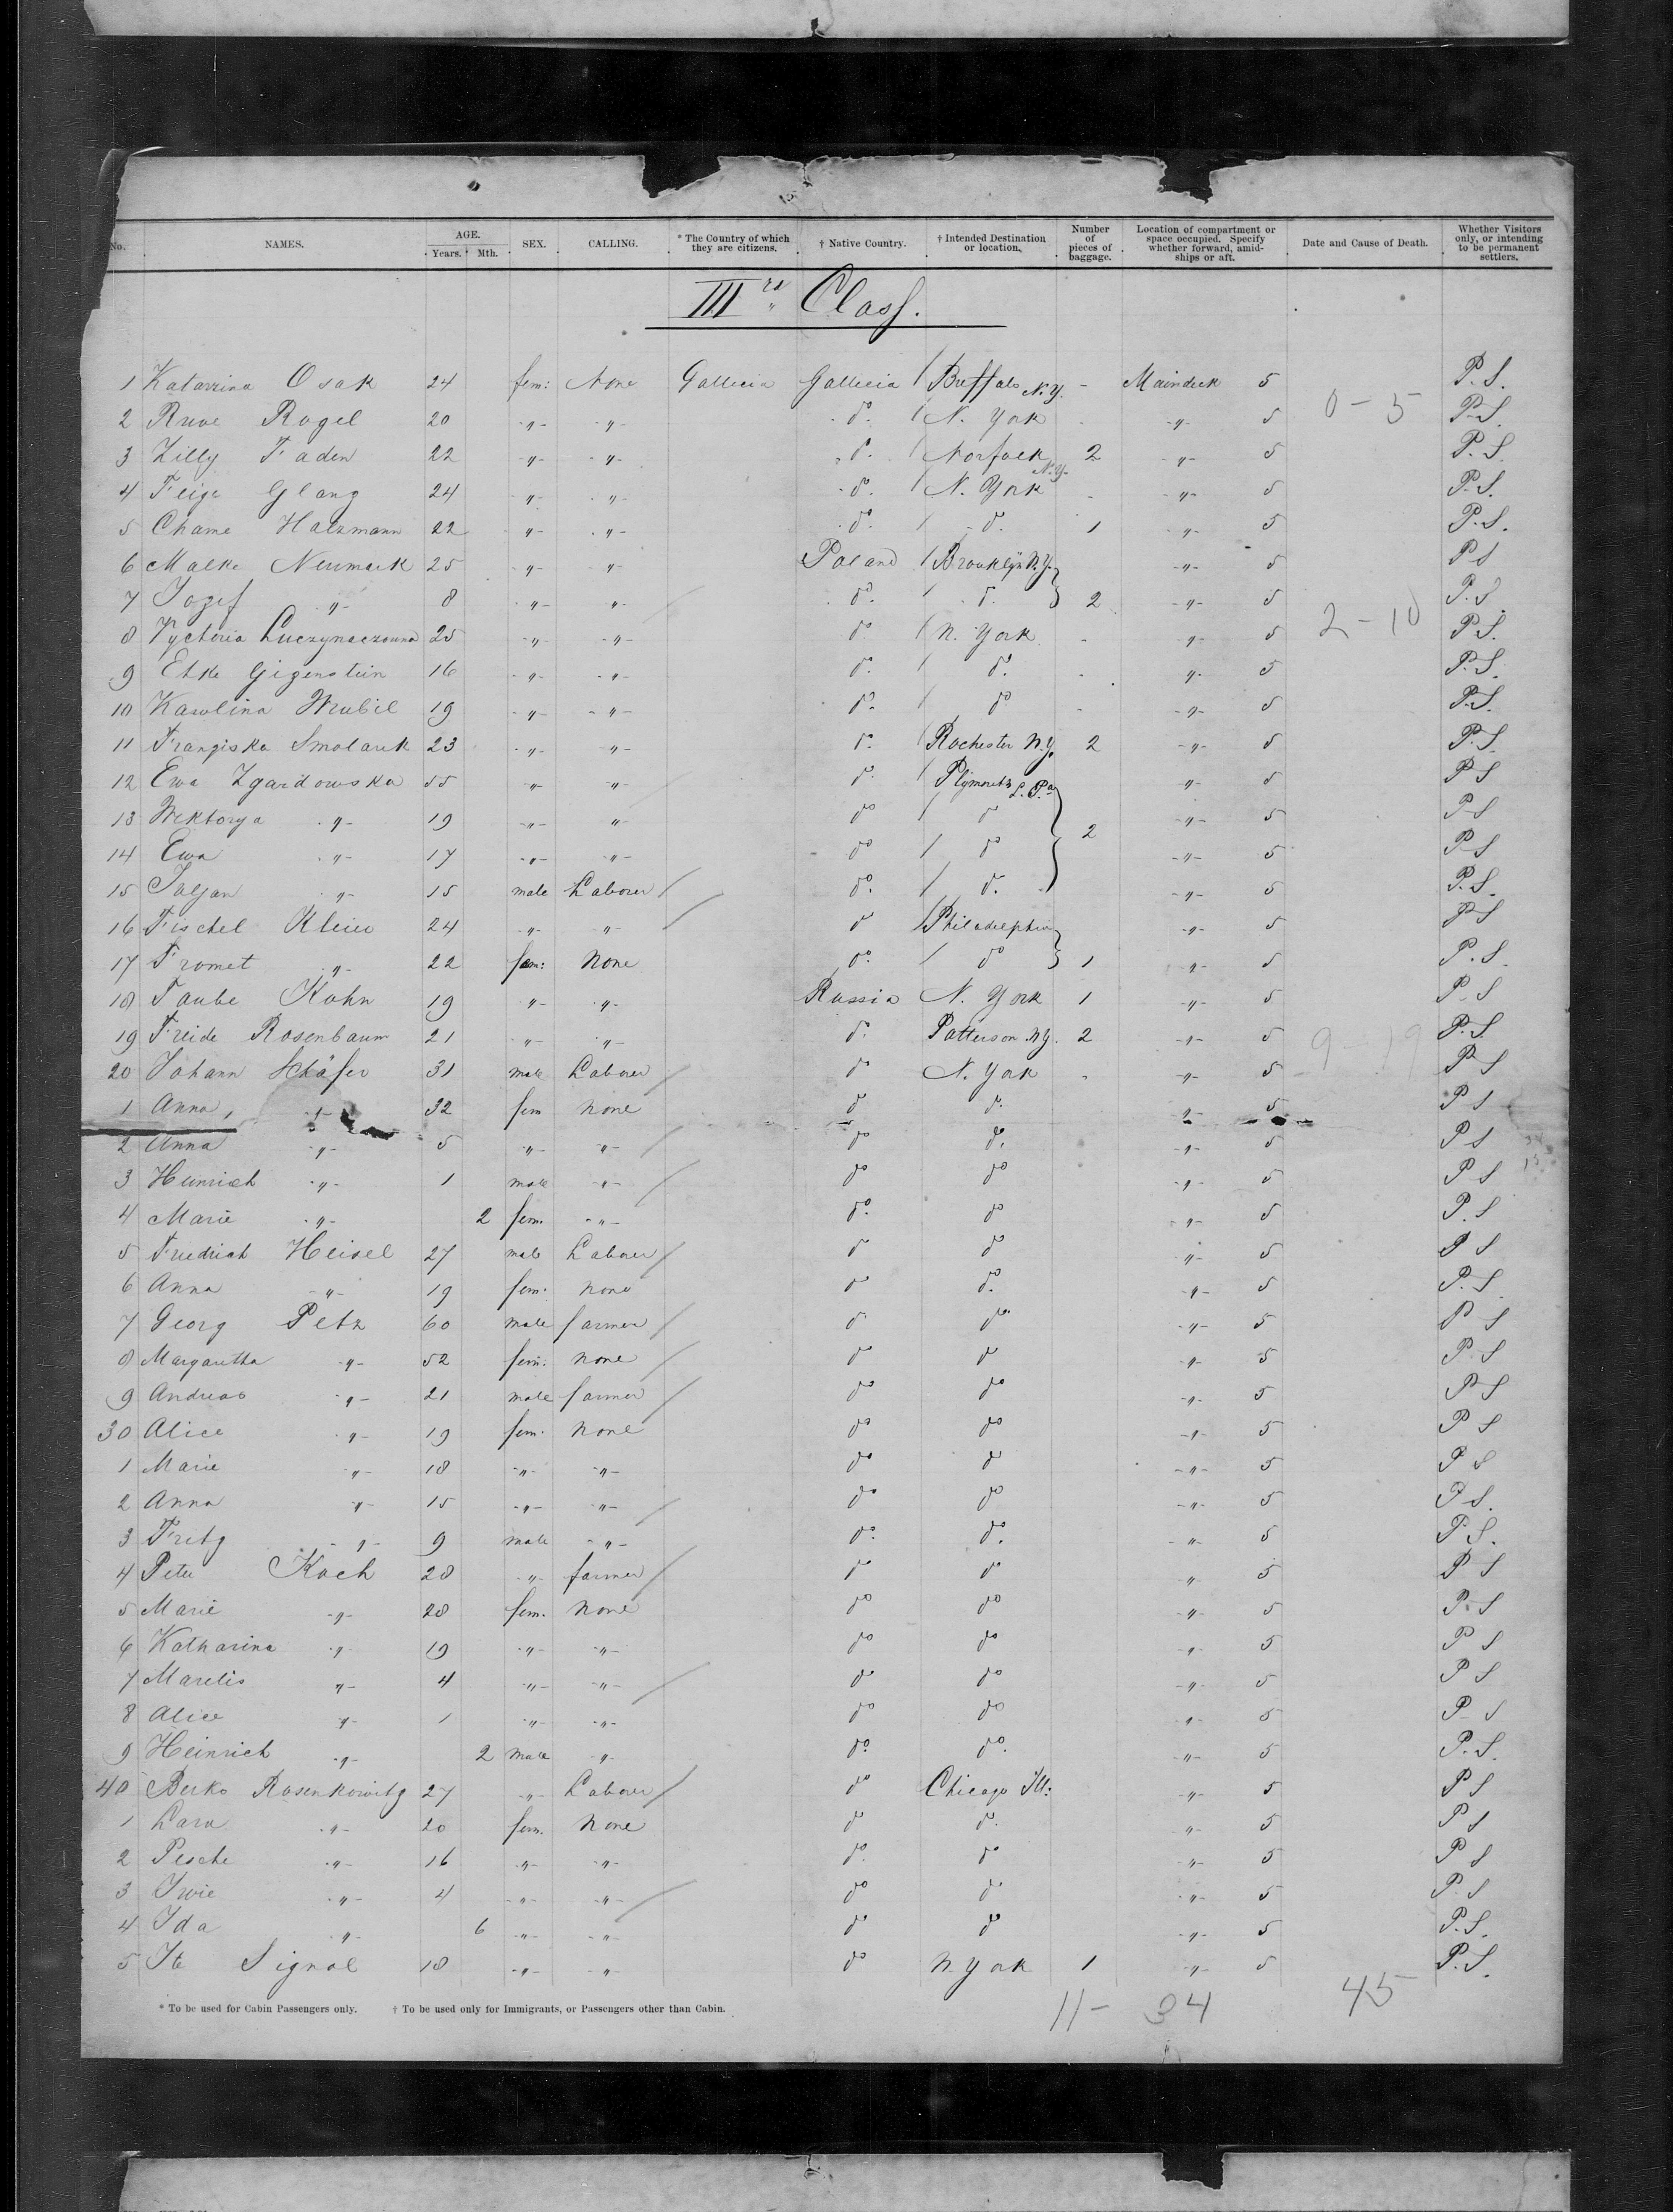 No. NAMES. AGE. Years. Mth. SEX. CALLING. * The Country of which they are citizens. † Native Country. † Intended Destination or location. Number of pieces of baggage. Location of compartment or space occupied. Specify whether forward, amid-ships or aft. Date and Cause of Death. Whether Visitors only, or intending to be permanent settlers.
IIIrd Class.
1 Katarzina Osak 24 fem: None Gallicia Gallicia Buffalo N.Y. - Maindeck 5 P.S.
0-5
2 Ruve Rogel 20 -"- -"- do. N. York - -"- 5 P.S.
3 Zilly Faden 22 -"- -"- do. Norfolk N.Y. 2 -"- 5 P.S.
4 Feige Glanz 24 -"- -"- do. N. York - -"- 5 P.S.
5 Chame Halzmann 22 -"- -"- do. do. 1 -"- 5 P.S.
6 Malke Neumark 25 -"- -"- Poland Brooklyn N.Y. -"- 5 P S
7 Jozef -"- 8 -"- -"- do. do. 2 -"- 5 P.S.
8 Vycteria 25 -"- -"- do. N. York - -"- 5 P.S.
2-10
9 Etke Gigenstein 16 -"- -"- do. do. - -"- 5 P.S.
10 Karolina Wrubil 19 -"- -"- do. do - -"- 5 P.S.
11 Franziska Smolarek 23 -"- -"- do. Rochester N.Y. 2 -"- 5 P.S.
12 Ewa Zgardowska 55 -"- -"- do. Plymouth L. Pa -"- 5 P S
13 Wektorya -"- 19 -"- -"- do do 2 -"- 5 P S
14 Ewa -"- 17 -"- -"- do do -"- 5 P S
15 -"- 15 male Laborer do. do. -"- 5 P.S.
16 Fischel Klein 24 -"- -"- do Philadelphia -"- 5 P S
17 Fromet -"- 22 fem: None do. do 1 -"- 5 P.S.
18 Taube Kohn 19 -"- -"- Russia N. York 1 -"- 5 P.S
19 Freide Rosenbaum 21 -"- -"- do. Patterson N.Y. 2 -"- 5 P.S.
9-19
20 Johann Schäfer 31 male Laborer do N. York - -"- 5 P S
1 Anna, -"- 32 fem none do do. -"- 5 P S
2 Anna -"- 5 -"- -"- do do. -"- 5 P S
3 Heinrich -"- 1 male -"- do do -"- 5 P S
4 Marie -"- 2 fem. -"- do. do -"- 5 P.S
5 Friedrich Heisel 27 male Laborer do do -"- 5 P S
6 Anna -"- 19 fem. none do do. -"- 5 P.S.
7 Georg Petz 60 male farmer do do -"- 5 P S
8 Margaretha -"- 52 fem. none do do -"- 5 P S
9 Andreas -"- 21 male farmer do do -"- 5 P S
30 Alice -"- 19 fem. none do do -"- 5 P S
1 Marie -"- 18 -"- -"- do do -"- 5 P S
2 Anna -"- 15 -"- -"- do do -"- 5 P S.
3 Fritz -"- 9 male -"- do. do. -"- 5 P S.
4 Peter Koch 28 -"- farmer do do -"- 5 P S
5 Marie -"- 28 fem. none do do -"- 5 P.S
6 Katharina -"- 19 -"- -"- do do -"- 5 P S
7 Marelis -"- 4 -"- -"- do do -"- 5 P S
8 Alice -"- 1 -"- -"- do do -"- 5 P S
9 Heinrich -"- 2 male -"- do. do. -"- 5 P.S.
40 Berko Rosenkowitz 27 -"- Laborer do Chicago Ill: -"- 5 P S
1 Sara -"- 20 fem. None do do. -"- 5 P S
2 Pesche -"- 16 -"- -"- do. do -"- 5 P S
3 Iwie -"- 4 -"- -"- do do -"- 5 P.S
4 Ida -"- 6 -"- -"- do do -"- 5 P.S.
5 Ite Signal 18 -"- -"- do N York 1 -"- 5 P.S.
* To be used for Cabin Passengers only. † To be used only for Immigrants, or Passengers other than Cabin.
11- 34 45